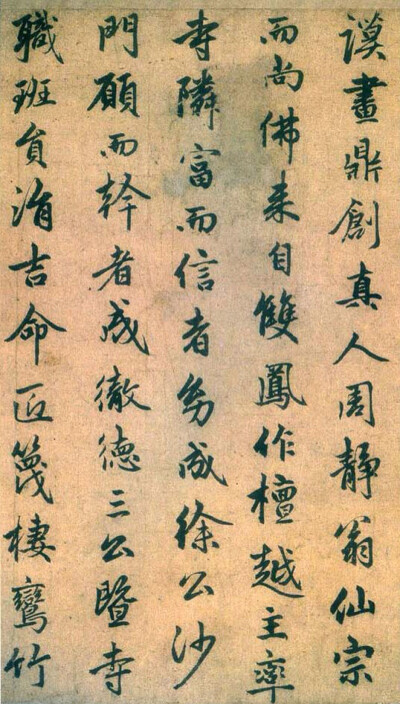 謨畫鼎創真人周静翁仙宗
而尚佛来自雙鳳作檀越主率
寺隣富而信者㓜成徐公沙
門願而幹者成徹德三公暨寺
職班貟涓吉命匠篾棲鸞竹